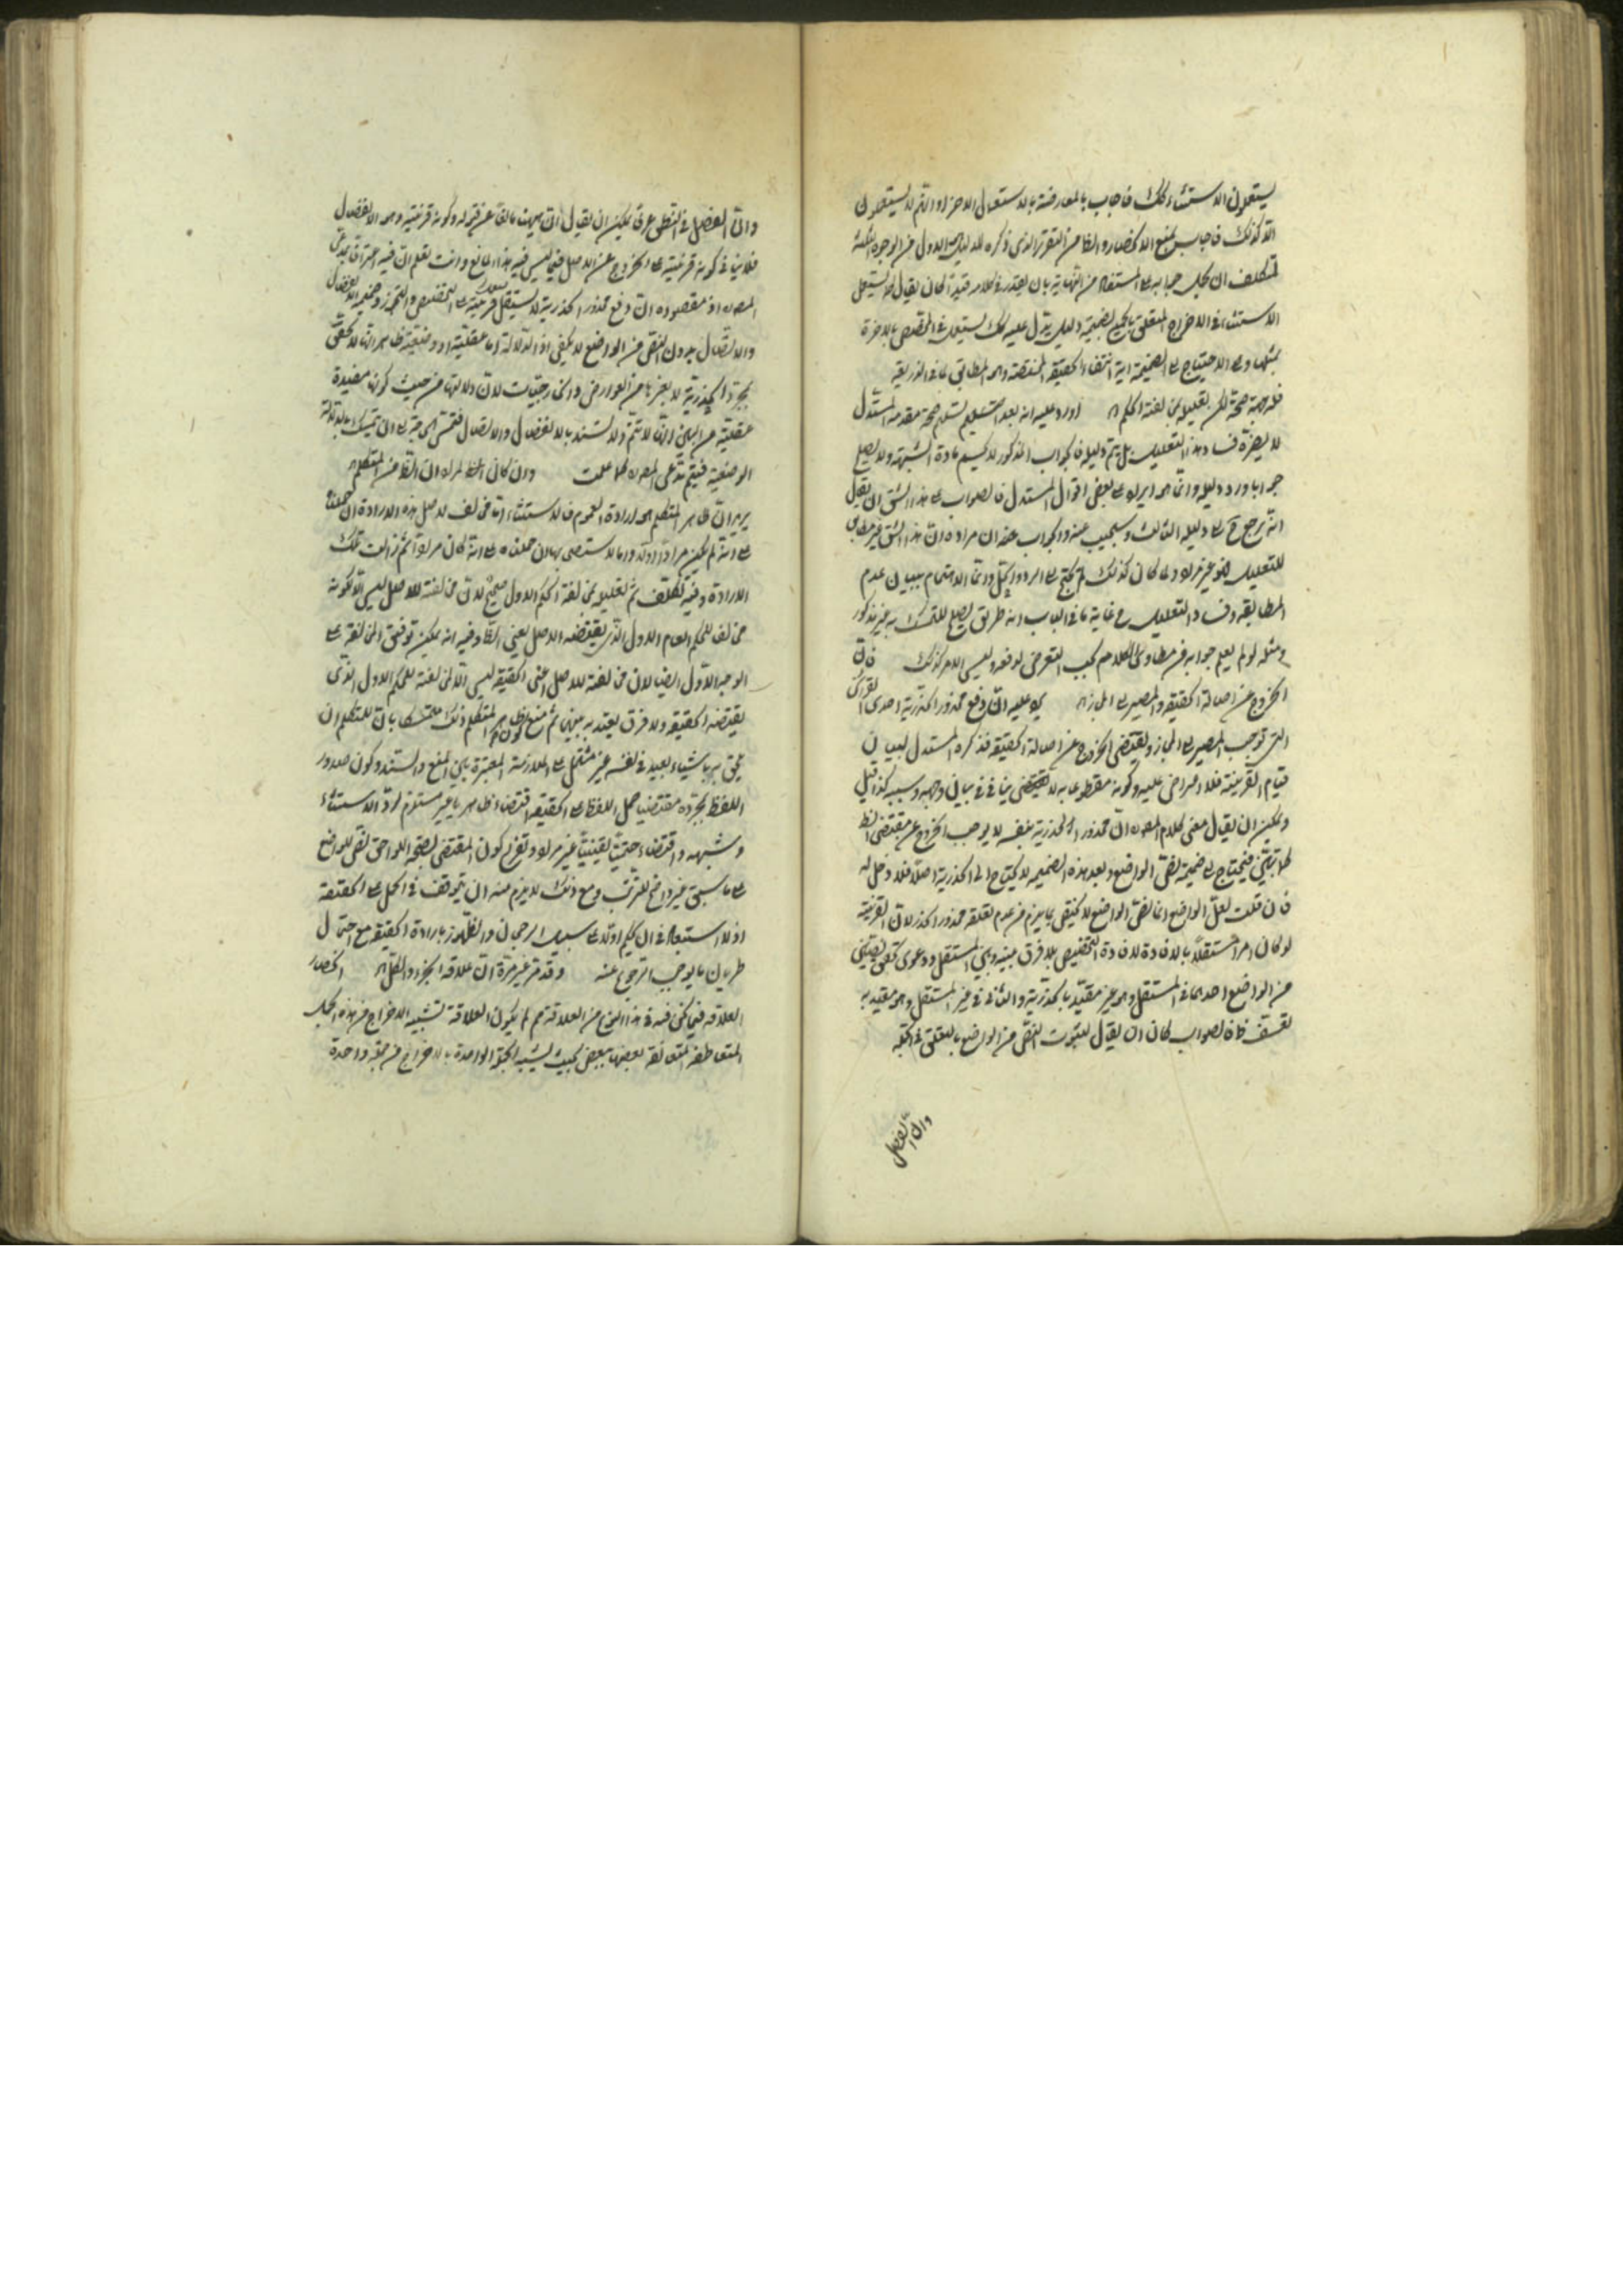 يستعملون الاستثناء كك فاجاب بالمعارضة بالاستعمال الاخر وانهم لا يستعملون
الا كذلك فاجاب بمنع الانحصار والظاهر من التقرير الذي ذكره الاول من الوجوه الثلثة
تتكلف ان يحمل جوابه على المستفاد من النهاية بان يقدر في كلامه قيد كان يقال قد يستعمل
الاستثناء في الاخراج المتعلق بالجميع بضميمة دليل يدل عليه كك يستعمل في المختص بالاخرة
بمثلها وعلى الاحتياج الى الضميمة اية انتفاء الحقيقة المختصة وهو المطابق لما في الذريعة
صحة لكن تعليله بمخالفة الحكم اورد عليه انه بعد تسليم صحة مقدمة المستدل
لا يضره فساد هذا التعليل بل يتم دليله فالجواب المذكور لا يحسم مادة الشبهة ولا يصلح
جوابا ورد دليله وانما هو ايراد على بعض اقوال المستدل فالصواب على هذا الشق ان يقال
انه يرجع ح الى دليله الثالث وسيجيب عنه والجواب عنه ان مراده ان هذا الشق غير مطابق
للتعليل فهو غير مراد ولما كان كذلك لم يحتج الى الرد وانما الاهتمام ببيان عدم
المطابقة وفساد التعليل ح غاية ما في الباب انه طريق يصلح للتمسك به غير مذكور
ومثله لو لم يعلم جوابه من مطاوي الكلام يجب التعرض لدفعه وليس الامر كذلك فان
الخروج عن اصالة الحقيقة والمصير الى المجاز يرد عليه ان دفع محذور الهذرية احدى القرائن
التي توجب المصير الى المجاز ويقتضي الخروج عن اصالة الحقيقة فذكره المستدل لبيان
قيام القرينة فلا اعتراض عليه وكونه مقطوعا به لا يقتضي ينافي بيان وجهه وسببه كذا قيل
ويمكن ان يقال معنى كلام المص ان محذور الهذرية بنفسه لا يوجب الخروج عن مقتضى اللفظ
كما تبين فيحتاج الى ضميمة نص الواضع وبعد هذه الضميمة لا يحتاج الى الهذرية اصلا فلا دخل له
فان قلت لعل الواضع انما نص الواضع لا كيفي يلزم من عدم تعلقه محذور الهذر لان القرينة
لو كان امرا مستقلا بالافادة لافادة التخصيص بلا فرق بينه وبين المستقل ودعوى تحقق نصين
من الواضع احدهما في المستقل وهو غير مقيد بالهذرية والثاني في غير المستقل وهو مقيد به
تعسف فالصواب كان ان يقال بثبوت النص من الواضع بالتعلق في الجملة
وان الفصل
وان الفصل في النطق عرفا يمكن ان يقال ان هيهنا مانعا عن قبوله وكونه قرينية وهو الانفصال
فلا ينافي كونه قرينية على الخروج عن الاصل فيما ليس فيه هذا المانع وانت تعلم ان فيه اعترافا بمدعى
المص اذ مقصوده ان دفع محذور الهذرية لا يستقل قرينة على التخصيص والتجوز وضميمة الانفصال
والاتصال بدون النص من الواضع لا يكفي اذ الدلالة اما عقلية او وضعية ظاهر انها لا تحقق
بمجرد الهذرية لا بغيرها من العوارض والخارجيات لان دلالتها من حيث كونها مفيدة
عقلية من البين انها لا تتم ولا تستند بالانفصال والاتصال فتمس الحاجة الى ان تتمسك بالدلالة
الوضعية فيتم مدعى المص كما علمت وان كان الظ مراده ان الظاهر من المتكلم
يريد ان ظاهر المتكلم هو ارادة العموم فالاستثناء اما مخالف لاصل هذه الارادة ان حملناه
على انه لم يكن مرادا اولا واما لاستصحابها ان حملناه على انه كان مرادا ثم زالت تلك
الارادة وفيه تكلف ثم تعليله بمخالفة الحكم الاول صحيح لان مخالفة الاصل ليس الا كونه
مخالف للحكم العام الاول الذي يقتضيه الاصل يعني الظ وفيه انه يمكن توفيق المخالفة على
الوجه الاول ايضا لان مخالفة للاصل اعني الحقيقة ليس الا لمخالفة للحكم الاول الذي
يقتضيه الحقيقة ولا فرق يعتد به بينهما ثم منع كون ظاهر المتكلم ذلك متمسكا بان للمتكلم ان
يلحق به ما شاء بعيد في نفسه غير مشتمل على الملازمة المعتبرة بين المنع والسند وكون صدور
اللفظ بمجرده مقتضيا حمل اللفظ على الحقيقة اقتضاء ظاهريا غير مستلزم لرد الاستثناء
وشبهه واقتضاء حتميا يقينيا غير مراد وتفريع كون المقتضى لصحة اللواحق نص الواضع
على ما سبق غير واضح الترتب ومع ذلك لا يلزم منه ان يتوقف في الحمل على الحقيقة
اذ لا استبعاد في ان يحكم اولا على سبيل الرجحان والظهور بارادة الحقيقة مع احتمال
طريان ما يوجب الرجوع عنه وقد مر غير مرة ان علاقة الجزء والكل انحصار
العلاقة فيما نحن فيه في هذا النوع من العلاقة مم لم لا يكون العلاقة تشبيه الاخراج من هذه الجمل
المتعاطفة المتعلقة بعضها ببعض بحيث يشبه الجملة الواحدة بالاخراج من جملة واحدة